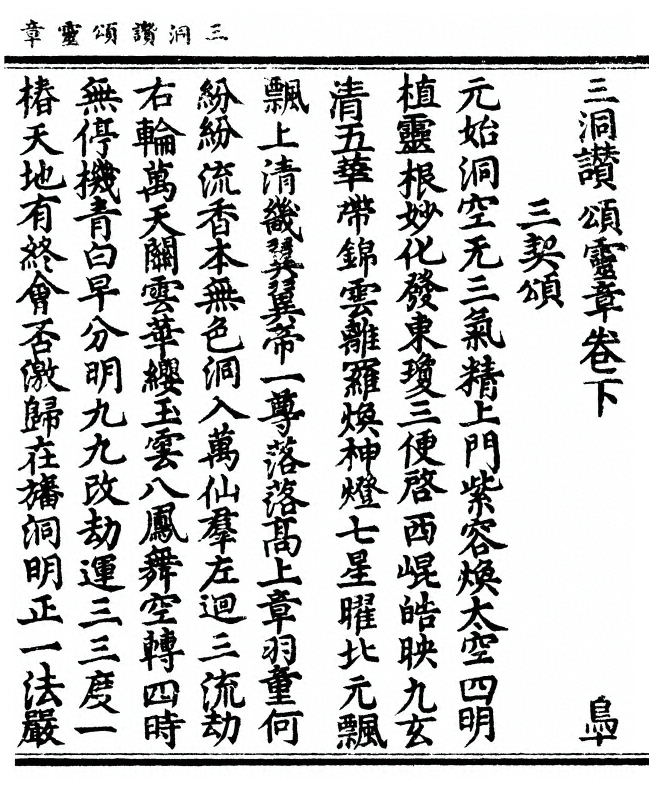 三洞讚頌靈章
三洞讚頌靈章卷下 鳥一
三契頌
元始洞空无三氣精上門紫容煥太空四明
植靈根妙化發東瓊三便啓西崐皓映九玄
清五華帶錦雲離羅煥神燈七星曜北元飄
飄上清畿翼翼帝一尊落落高上章羽童何
紛紛流香本無色洞入萬仙羣左迴三流劫
右輪萬天關雲華纓玉雲八鳳舞空轉四時
無停機青白早分明九九改劫運三三度一
椿天地有終會否激歸在旛洞明正一法嚴